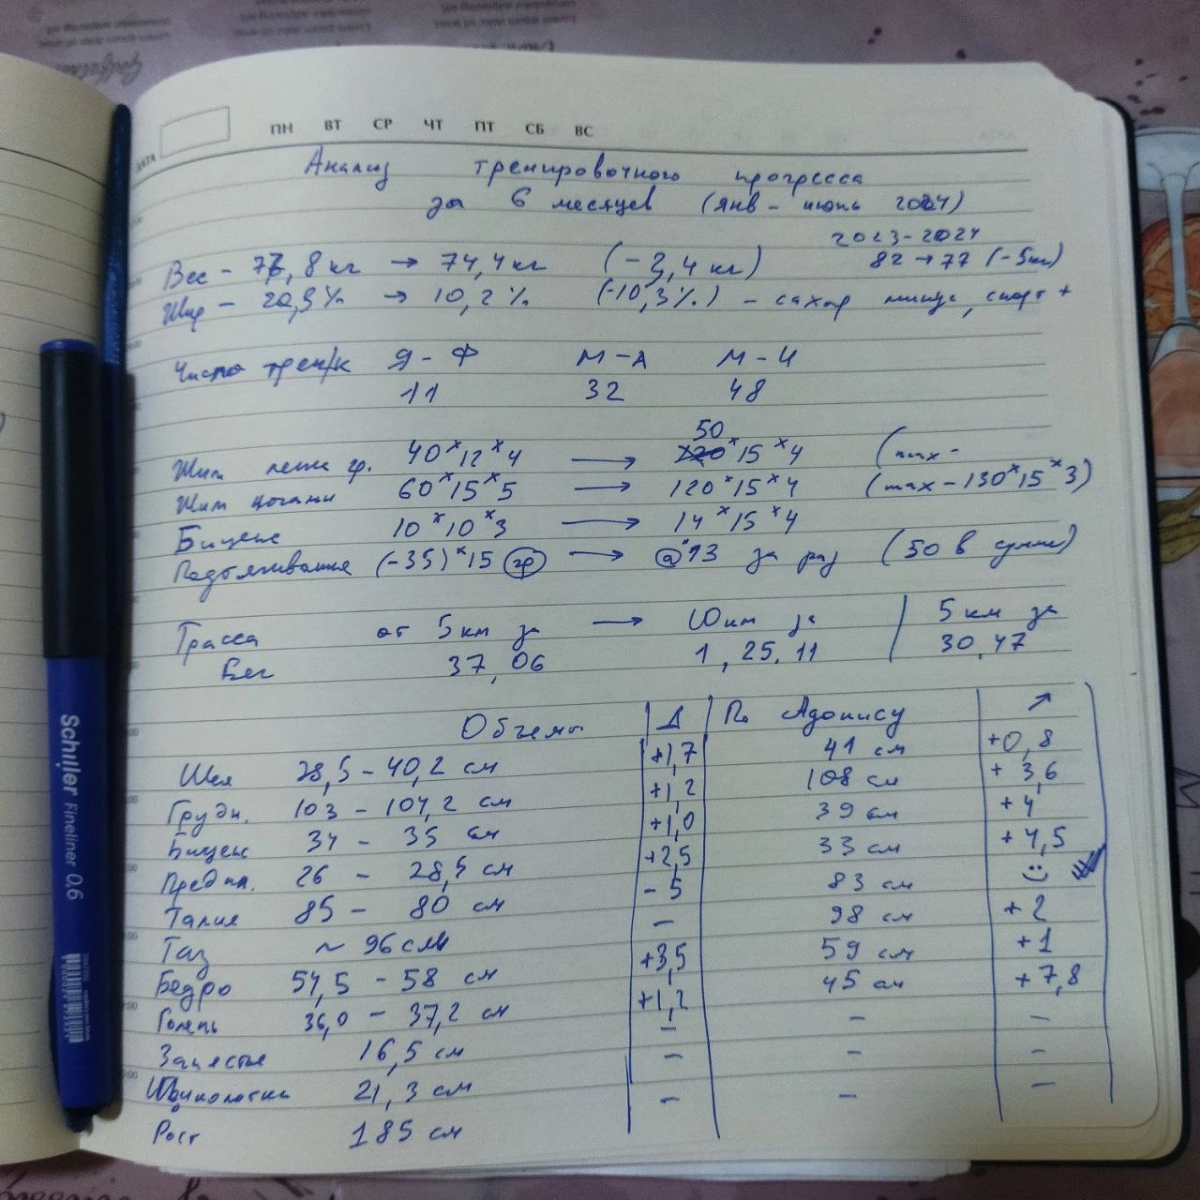 ДАТА ПН ВТ СР ЧТ ПТ СБ ВС
Анализ тренировочного прогресса
за 6 месяцев (янв - июнь 2024)
2023-2024
82 → 77 (-5кг)
Вес - 77,8 кг → 74,4 кг (-3,4 кг)
Жир - 20,5% → 10,2% (-10,3%) - сахар минус, спорт +
Число трен/к Я - Ф М - А М - И
11 32 48
50
Жим лежа гр. 40×12×4 → ×15×4 (max -
Жим ногами 60×15×5 → 120×15×4 (max - 130×15×3)
Бицепс 10×10×3 → 14×15×4
Подтягивания (-35)×15 гр → @ 13 за раз (50 в сумме)
Трасса от 5 км за → 10 км за | 5 км за
Бег 37,06 1,25.11 30,47
Объемы Δ По Адонису ↗
Шея 38,5 - 40,2 см +1,7 41 см +0,8
Грудн. 103 - 104,2 см +1,2 108 см + 3,6
Бицепс 34 - 35 см +1,0 39 см +4
Предпл. 26 - 28,5 см +2,5 33 см + 4,5
Талия 85 - 80 см - 5 83 см
Таз ~ 96 см - 98 см + 2
Бедро 54,5 - 58 см +3,5 59 см +1
Голень 36,0 - 37,2 см +1,2 45 см + 7,8
Запястье 16,5 см - - -
Щиколотки 21,3 см - - -
Рост 185 см - - -
Schiller Fineliner 0.6